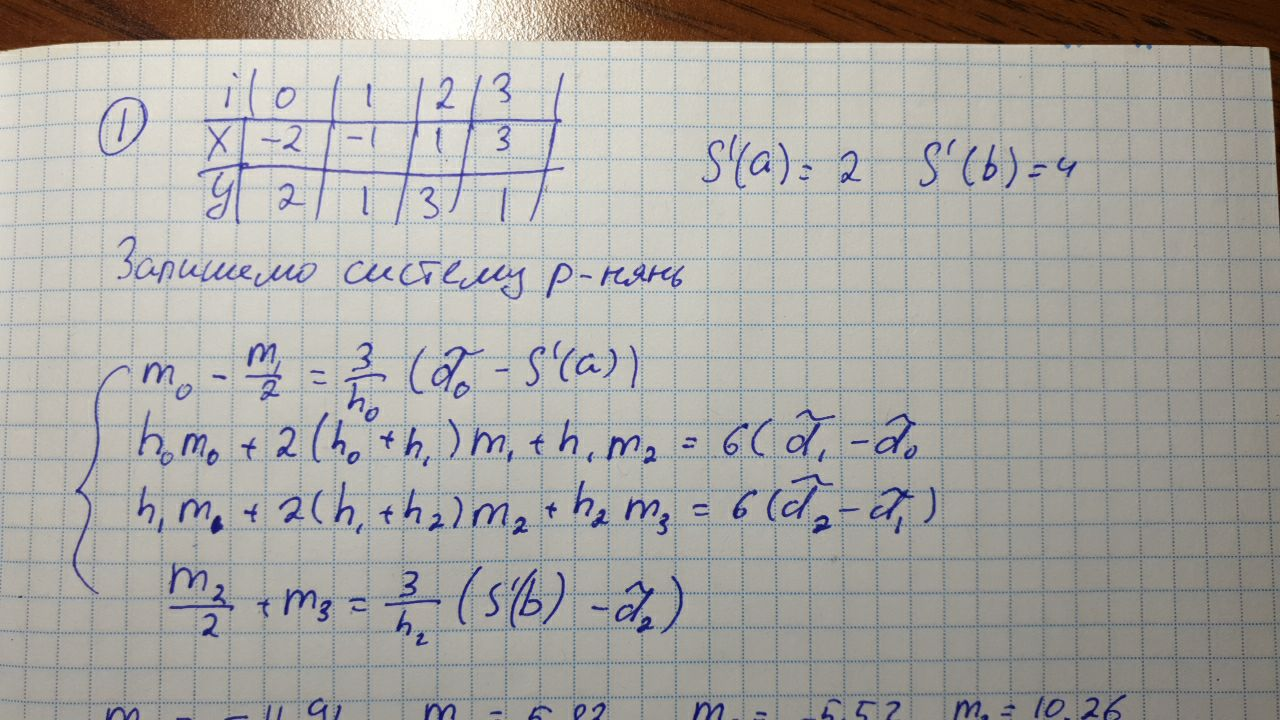 ① i | 0 | 1 | 2 | 3 |
X | -2 | -1 | 1 | 3 S'(a) = 2 S'(b) = 4
y | 2 | 1 | 3 | 1
Запишемо систему р-нянь
m₀ - m₁/2 = 3/h₀ (d̃₀ - S'(a))
h₀m₀ + 2(h₀ + h₁)m₁ + h₁m₂ = 6(d̃₁ - d̃₀
h₁m₁ + 2(h₁ + h₂)m₂ + h₂m₃ = 6(d̃₂ - d̃₁)
m₂/2 + m₃ = 3/h₂ (S'(b) - d̃₂)